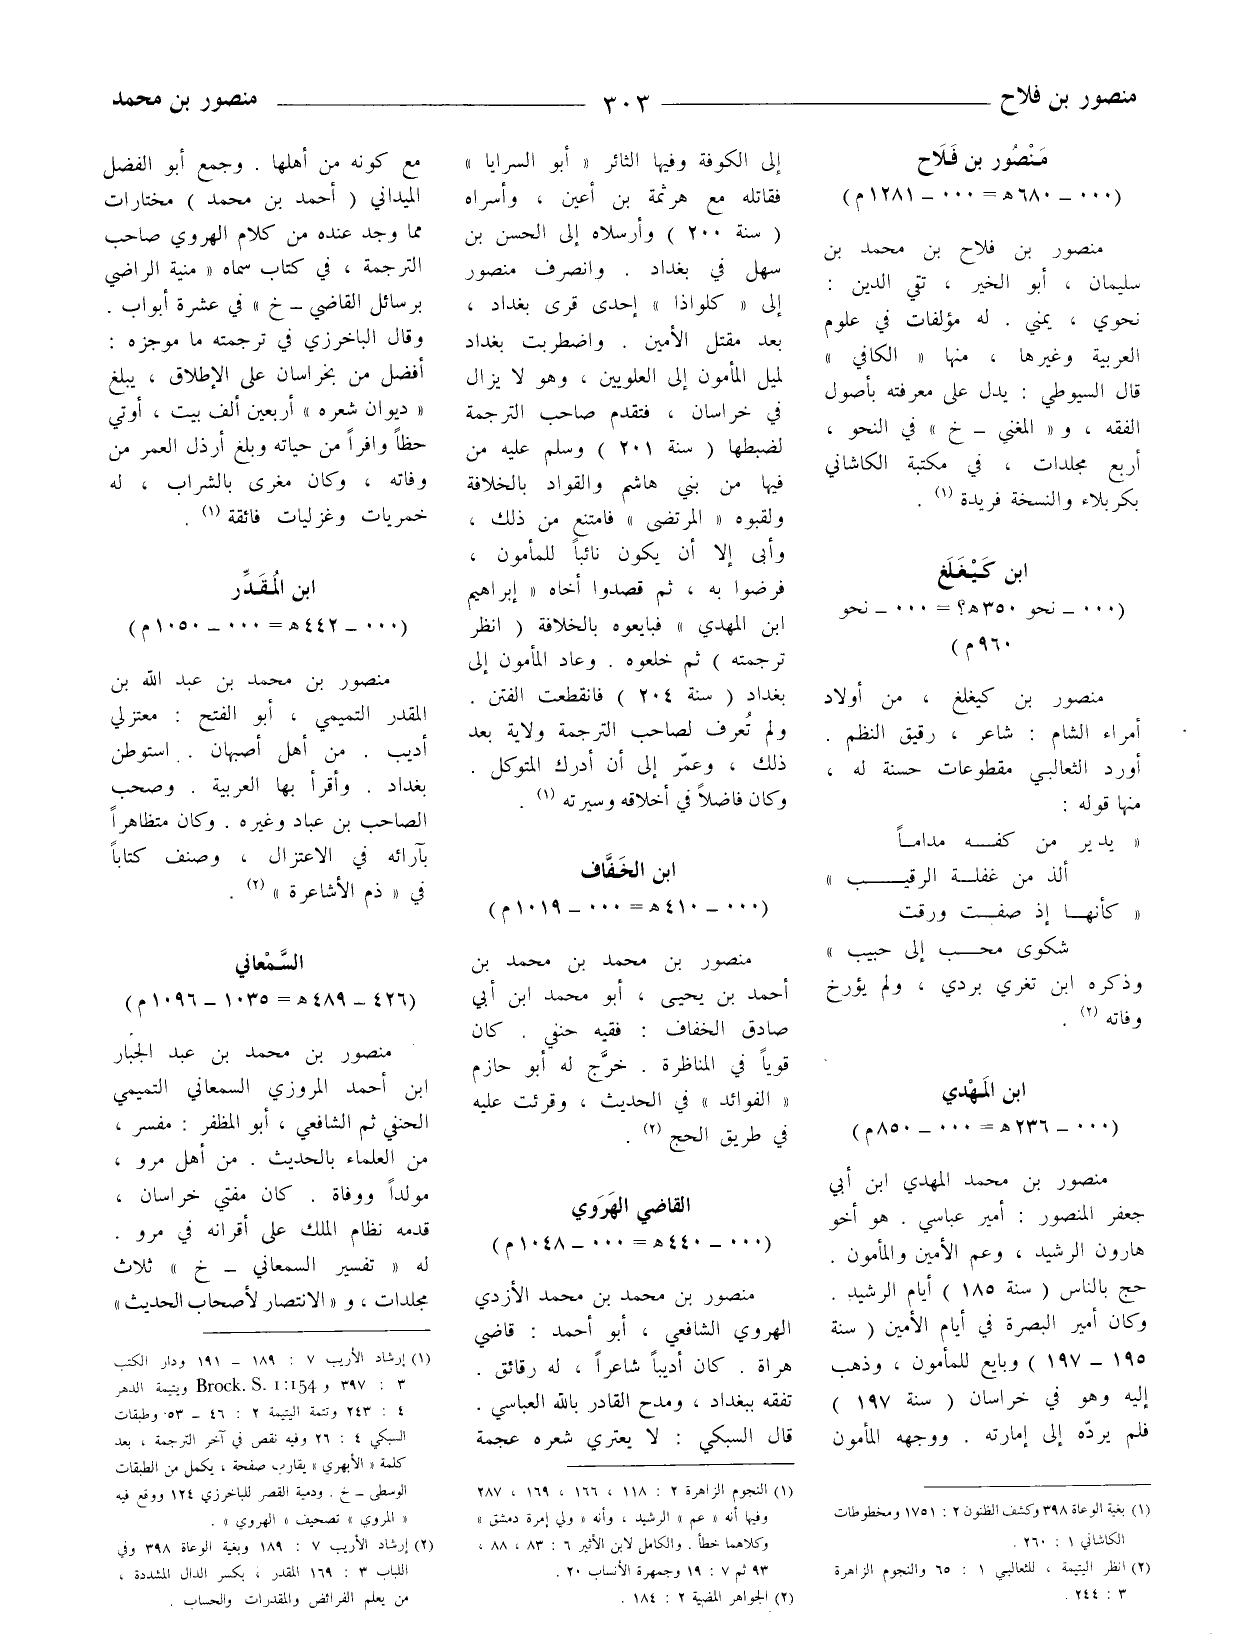 منصور بن فلاح ــــــ ٣٠٣ ــــــ منصور بن محمد
مَنْصُور بن فَلَاح
(٠٠٠ ـ ٦٨٠ هـ = ٠٠٠ ـ ١٢٨١ م)
منصور بن فلاح بن محمد بن
سليمان ، أبو الخير ، تقي الدين :
نحوي ، يمني . له مؤلفات في علوم
العربية وغيرها ، منها « الكافي »
قال السيوطي : يدل على معرفته بأصول
الفقه ، و « المغني ـ خ » في النحو ،
أربع مجلدات ، في مكتبة الكاشاني
بكربلاء والنسخة فريدة (١) .
ابن كَيْغَلَغ
(٠٠٠ ـ نحو ٣٥٠ هـ؟ = ٠٠٠ ـ نحو
٩٦٠ م)
منصور بن كيغلغ ، من أولاد
أمراء الشام : شاعر ، رقيق النظم .
أورد الثعالبي مقطوعات حسنة له ،
منها قوله :
« يدير من كفـه مدامـاً
ألذ من غفلـة الرقيـب »
« كأنهـا إذ صفـت ورقت
شكوى محـب إلى حبيب »
وذكره ابن تغري بردي ، ولم يؤرخ
وفاته (٢) .
ابن المَهْدي
(٠٠٠ ـ ٢٣٦ هـ = ٠٠٠ ـ ٨٥٠ م)
منصور بن محمد المهدي ابن أبي
جعفر المنصور : أمير عباسي . هو أخو
هارون الرشيد ، وعم الأمين والمأمون .
حج بالناس ( سنة ١٨٥ ) أيام الرشيد .
وكان أمير البصرة في أيام الأمين ( سنة
١٩٥ ـ ١٩٧ ) وبايع للمأمون ، وذهب
إليه وهو في خراسان ( سنة ١٩٧ )
فلم يردّه إلى إمارته . ووجهه المأمون
(١) بغية الوعاة ٣٩٨ وكشف الظنون ٢ : ١٧٥١ ومخطوطات
الكاشاني ١ : ٢٦٠ .
(٢) انظر اليتيمة ، للثعالبي ١ : ٦٥ والنجوم الزاهرة
٣ : ٢٤٤ .
إلى الكوفة وفيها الثائر « أبو السرايا »
فقاتله مع هرثمة بن أعين ، وأسراه
( سنة ٢٠٠ ) وأرسلاه إلى الحسن بن
سهل في بغداد . وانصرف منصور
إلى « كلواذا » إحدى قرى بغداد ،
بعد مقتل الأمين . واضطربت بغداد
لميل المأمون إلى العلويين ، وهو لا يزال
في خراسان ، فتقدم صاحب الترجمة
لضبطها ( سنة ٢٠١ ) وسلم عليه من
فيها من بني هاشم والقواد بالخلافة
ولقبوه « المرتضى » فامتنع من ذلك ،
وأبى إلا أن يكون نائباً للمأمون ،
فرضوا به ، ثم قصدوا أخاه « إبراهيم
ابن المهدي » فبايعوه بالخلافة ( انظر
ترجمته ) ثم خلعوه . وعاد المأمون إلى
بغداد ( سنة ٢٠٤ ) فانقطعت الفتن .
ولم تُعرف لصاحب الترجمة ولاية بعد
ذلك ، وعمّر إلى أن أدرك المتوكل .
وكان فاضلاً في أخلاقه وسيرته (١) .
ابن الخَفَّاف
(٠٠٠ ـ ٤١٠ هـ = ٠٠٠ ـ ١٠١٩ م)
منصور بن محمد بن محمد بن
أحمد بن يحيى ، أبو محمد ابن أبي
صادق الخفاف : فقيه حنفي . كان
قوياً في المناظرة . خرَّج له أبو حازم
« الفوائد » في الحديث ، وقرئت عليه
في طريق الحج (٢) .
القاضي الهَرَوي
(٠٠٠ ـ ٤٤٠ هـ = ٠٠٠ ـ ١٠٤٨ م)
منصور بن محمد بن محمد الأزدي
الهروي الشافعي ، أبو أحمد : قاضي
هراة . كان أديباً شاعراً ، له رقائق .
تفقه ببغداد ، ومدح القادر بالله العباسي .
قال السبكي : لا يعتري شعره عجمة
(١) النجوم الزاهرة ٢ : ١١٨ ، ١٦٦ ، ١٦٩ ، ٢٨٧
وفيها أنه « عم » الرشيد ، وأنه « ولي إمرة دمشق »
وكلاهما خطأ . والكامل لابن الأثير ٦ : ٨٣ ، ٨٨ ،
٩٣ ثم ٧ : ١٩ وجمهرة الأنساب ٢٠ .
(٢) الجواهر المضية ٢ : ١٨٤ .
مع كونه من أهلها . وجمع أبو الفضل
الميداني ( أحمد بن محمد ) مختارات
مما وجد عنده من كلام الهروي صاحب
الترجمة ، في كتاب سماه « منية الراضي
برسائل القاضي ـ خ » في عشرة أبواب .
وقال الباخرزي في ترجمته ما موجزه :
أفضل من بخراسان على الإطلاق ، يبلغ
« ديوان شعره » أربعين ألف بيت ، أوتي
حظاً وافراً من حياته وبلغ أرذل العمر من
وفاته ، وكان مغرى بالشراب ، له
خمريات وغزليات فائقة (١) .
ابن المُقَدِّر
(٠٠٠ ـ ٤٤٢ هـ = ٠٠٠ ـ ١٠٥٠ م)
منصور بن محمد بن عبد الله بن
المقدر التميمي ، أبو الفتح : معتزلي
أديب . من أهل أصبهان . استوطن
بغداد . وأقرأ بها العربية . وصحب
الصاحب بن عباد وغيره . وكان متظاهراً
بآرائه في الاعتزال ، وصنف كتاباً
في « ذم الأشاعرة » (٢) .
السَّمْعاني
(٤٢٦ ـ ٤٨٩ هـ = ١٠٣٥ ـ ١٠٩٦ م)
منصور بن محمد بن عبد الجبار
ابن أحمد المروزي السمعاني التميمي
الحنفي ثم الشافعي ، أبو المظفر : مفسر ،
من العلماء بالحديث . من أهل مرو ،
مولداً ووفاة . كان مفتي خراسان ،
قدمه نظام الملك على أقرانه في مرو .
له « تفسير السمعاني ـ خ » ثلاث
مجلدات ، و « الانتصار لأصحاب الحديث »
(١) إرشاد الأريب ٧ : ١٨٩ ـ ١٩١ ودار الكتب
٣ : ٣٩٧ و Brock. S. 1:154 ويتيمة الدهر
٤ : ٢٤٣ وتتمة اليتيمة ٢ : ٤٦ ـ ٥٣ وطبقات
السبكي ٤ : ٢٦ وفيه نقص في آخر الترجمة ، بعد
كلمة « الأبهري » يقارب صفحة ، يكمل من الطبقات
الوسطى ـ خ . ودمية القصر للباخرزي ١٢٤ ووقع فيه
« المروي » تصحيف « الهروي » .
(٢) إرشاد الأريب ٧ : ١٨٩ وبغية الوعاة ٣٩٨ وفي
اللباب ٣ : ١٦٩ المقدر ، بكسر الدال المشددة ،
من يعلم الفرائض والمقدرات والحساب .